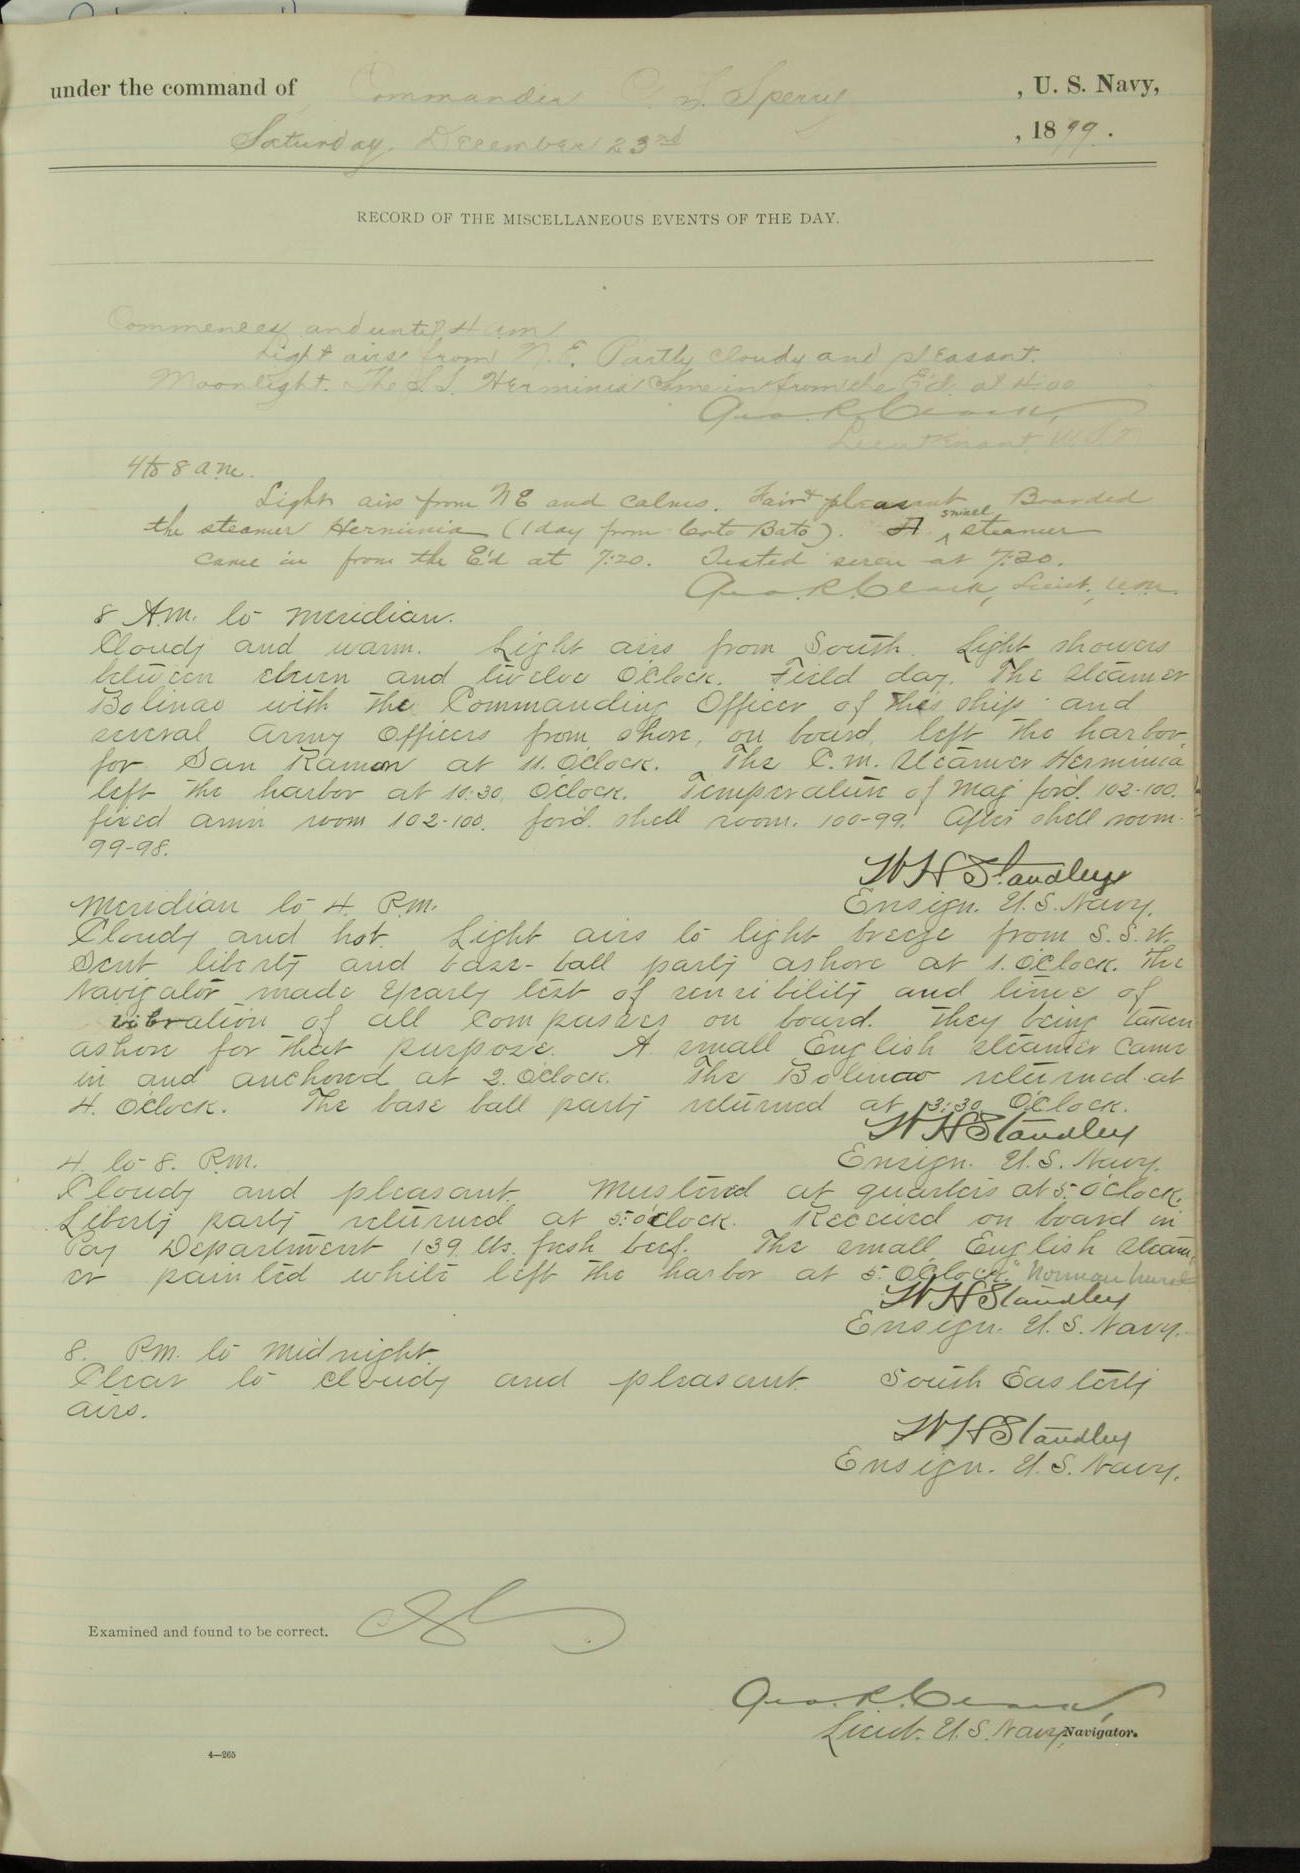 under the command of Commander C. S. Sperry, U. S. Navy,
Saturday, December 23rd, 1899.
RECORD OF THE MISCELLANEOUS EVENTS OF THE DAY.
Commences and until 4 am
Light airs from N.E. Partly cloudy and pleasant.
Moonlight. The S.S. Herminia came in from the E'd. at 4:00
Geo. R. Clark,
Lieutenant, U.S.N.
4 to 8 a.m.
Light airs from NE and calms. Fair & pleasant Boarded
the steamer Herminia (1 day from Coto Bato). A small steamer
came in from the E'd at 7:20. Tested siren at 7:30.
Geo. R. Clark, Lieut., U.S.N.
8 A.M. to Meridian.
Cloudy and warm. Light airs from South. Light showers
between eleven and twelve O'Clock. Field day. The steamer
Bolinao with the Commanding Officer of this ship and
several Army Officers from shore, on board, left the harbor
for San Ramon at 11. O'Clock. The C.M. Steamer Herminia
left the harbor at 10:30. O'Clock. Temperature of Mag for'd. 102-100.
fixed amn room 102-100. for'd. shell room. 100-99. After shell room.
99-98.
W H Standley
Ensign. U.S. Navy.
Meridian to 4. P.M.
Cloudy and hot. Light airs to light breeze from S.S.W.
Sent liberty and base-ball party ashore at 1. O'Clock. The
Navigator made yearly test of sensibility and time of
vibration of all compasses on board. They being taken
ashore for that purpose. A small English steamer came
in and anchored at 2. O'Clock. The Bolinao returned at
4. O'Clock. The base ball party returned at 3:30. O'Clock.
W H Standley
Ensign. U.S. Navy.
4. to 8. P.M.
Cloudy and pleasant. Mustered at quarters at 5. O'Clock.
Liberty party returned at 5: o'clock. Received on board in
Pay Department 139. lbs. fresh beef. The small English steam-
er painted white left the harbor at 5. O'Clock. "Normanhurst
W H Standley
Ensign. U.S. Navy.
8. P.M. to Midnight.
Clear to cloudy and pleasant. South Easterly
airs.
W H Standley
Ensign. U.S. Navy.
Examined and found to be correct.
Geo. R. Clark,
Lieut. U.S. Navy, Navigator.
4—265